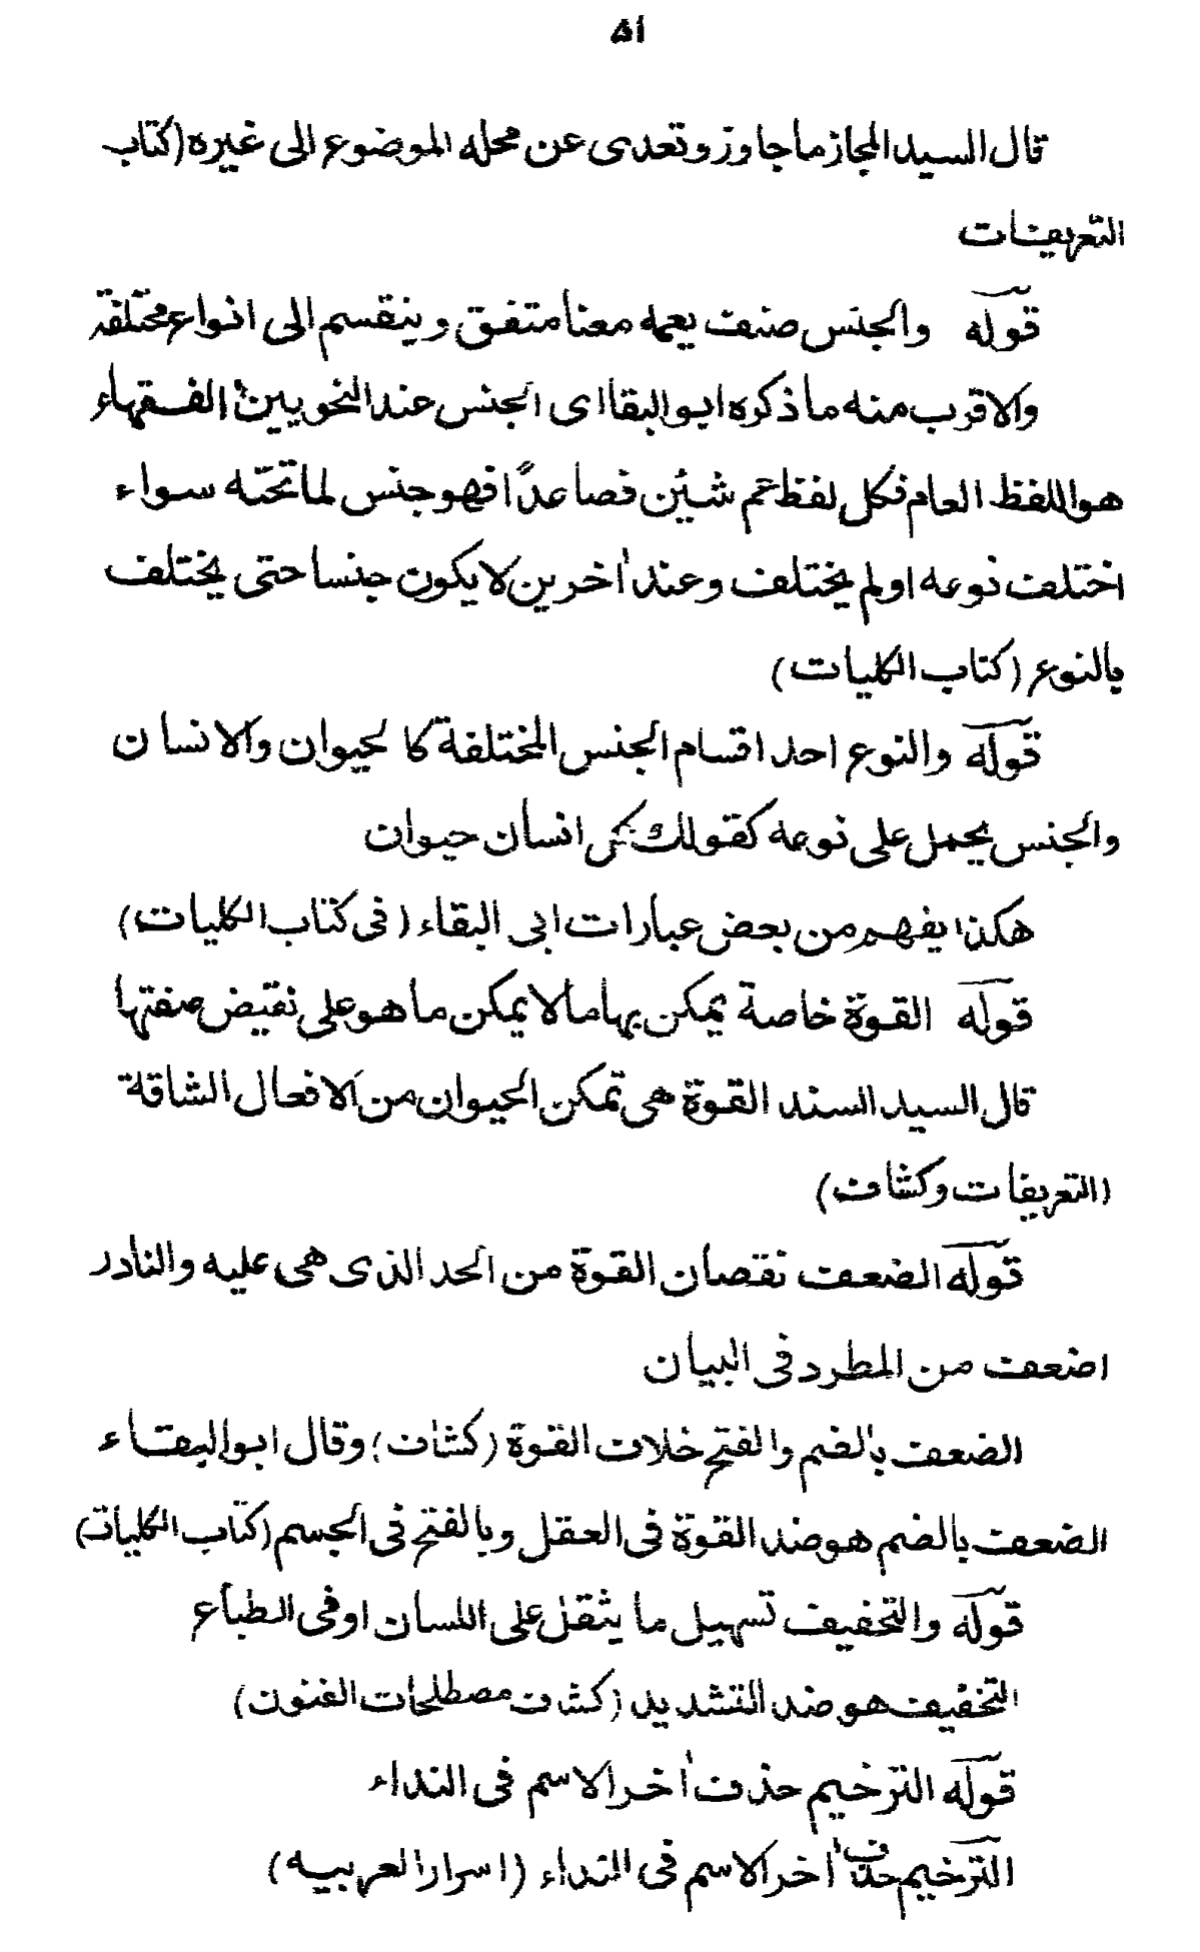 ۵۱
قال السيد المجاز ما جاوز وتعدى عن محله الموضوع الى غيره (كتاب
التعريفات
قوله والجنس صنف يعمه معنا متفق وينقسم الى انواع مختلفة
والاقرب منه ما ذكره ابو البقا اى الجنس عند النحويين الفقهاء
هو اللفظ العام فكل لفظ عم شيئن فصاعدًا فهو جنس لما تحته سواء
اختلف نوعه او لم يختلف وعند اٰخرين لا يكون جنسا حتى يختلف
بالنوع (كتاب الكليات)
قوله والنوع احد اقسام الجنس المختلفة كالحيوان والانسان
والجنس يحمل على نوعه كقولك كل انسان حيوان
هكذا يفهم من بعض عبارات ابى البقاء (فى كتاب الكليات)
قوله القوة خاصة يمكن بها ما لا يمكن ما هو على نقيض صفتها
قال السيد السند القوة هى تمكن الحيوان من الافعال الشاقة
(التعريفات وكشاف)
قوله الضعف نقصان القوة من الحد الذى هى عليه والنادر
اضعف من المطرد فى البيان
الضعف بالضم والفتح خلاف القوة (كشاف) وقال ابو البقاء
الضعف بالضم هو ضد القوة فى العقل وبالفتح فى الجسم (كتاب الكليات)
قوله والتخفيف تسهيل ما يثقل على اللسان او فى الطباع
التخفيف هو ضد التشديد (كشاف مصطلحات الفنون)
قوله الترخيم حذف اٰخر الاسم فى النداء
الترخيم حذف اٰخر الاسم فى النداء (اسرار العربيه)